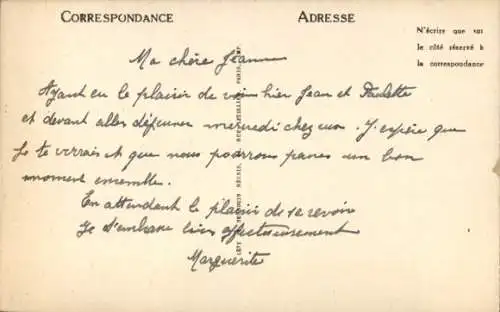 CORRESPONDANCE
ADRESSE
N'écrire que sur
le côté réservé à
la correspondance
Ma chère Jeanne
Ayant eu le plaisir de voir hier Jean et Paulette
et devant aller déjeuner mercredi chez eux. J'espère que
je te verrais et que nous pourrons passer un bon
moment ensemble.
En attendant le plaisir de te revoir
Je t'embrasse bien affectueusement
Marguerite